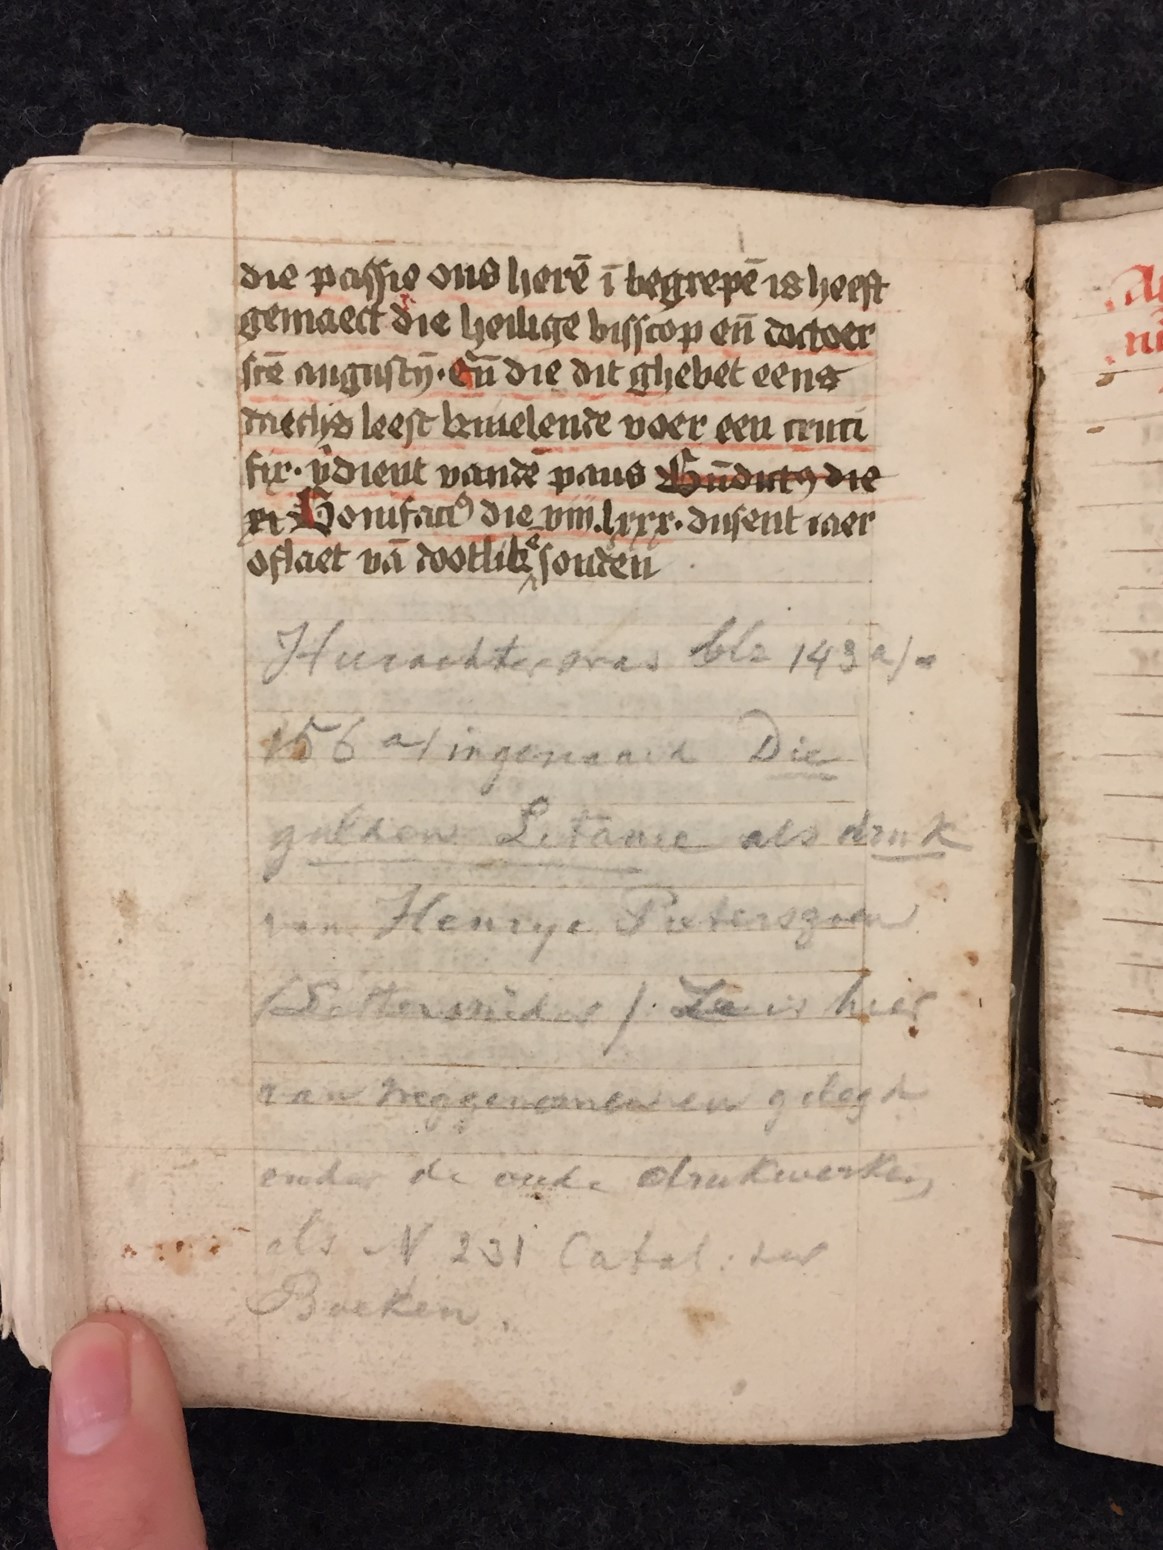 die passie ons herē ī begrepē is heeft
gemaect die heilige bisscop eñ doctoer
scē augustȳ · Eñ die dit ghebet eens
daechs leest knielende voer een cruci
fix · v̄dient vandē paus Bn̄dictꝰ die
xi Bonifaciꝰ die viii. lxxx · dusent iaer
oflaet vā dootlikē sonden
Hierachter was blz 143 a/-
156 a/ ingenaaid Die
gulden Litanie als druk
van Henryc Pieterszoen
/Lettersnider/. Ze is hier
van weggenomen en gelegd
onder de oude drukwerken
als N 231 Catal. der
Boeken.